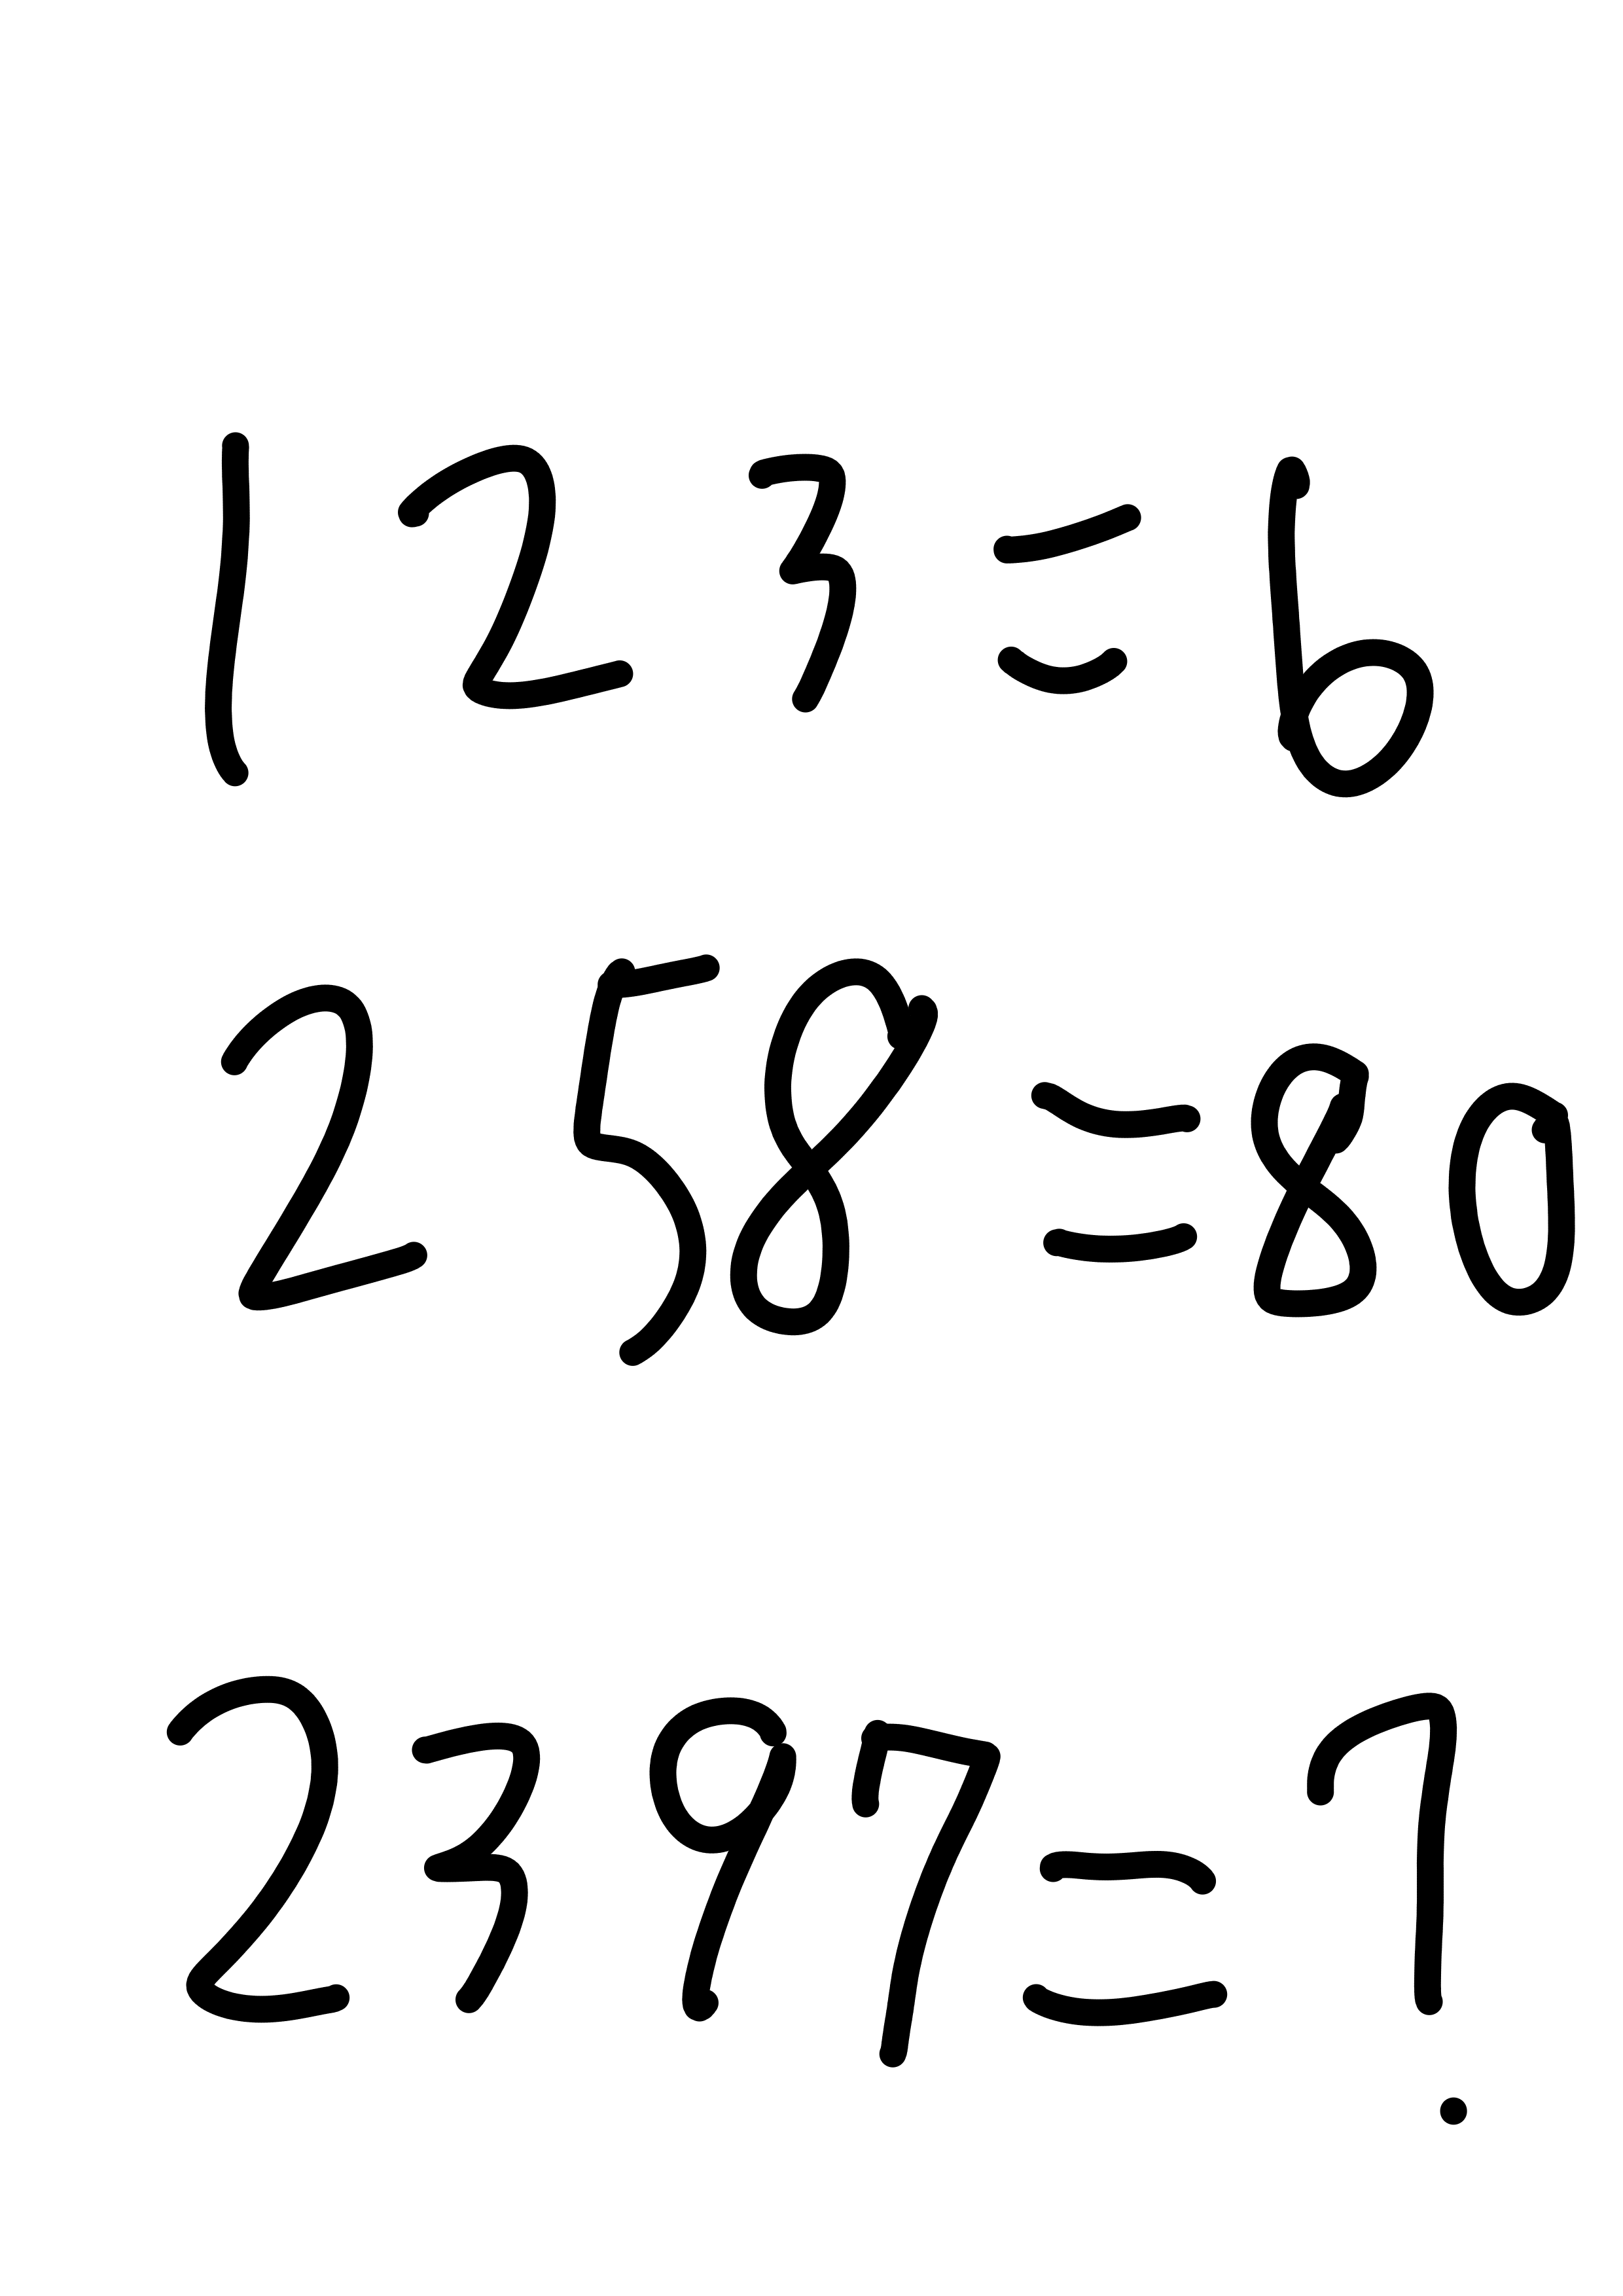 1 2 3 = 6
2 5 8 = 80
2 3 9 7 = ?